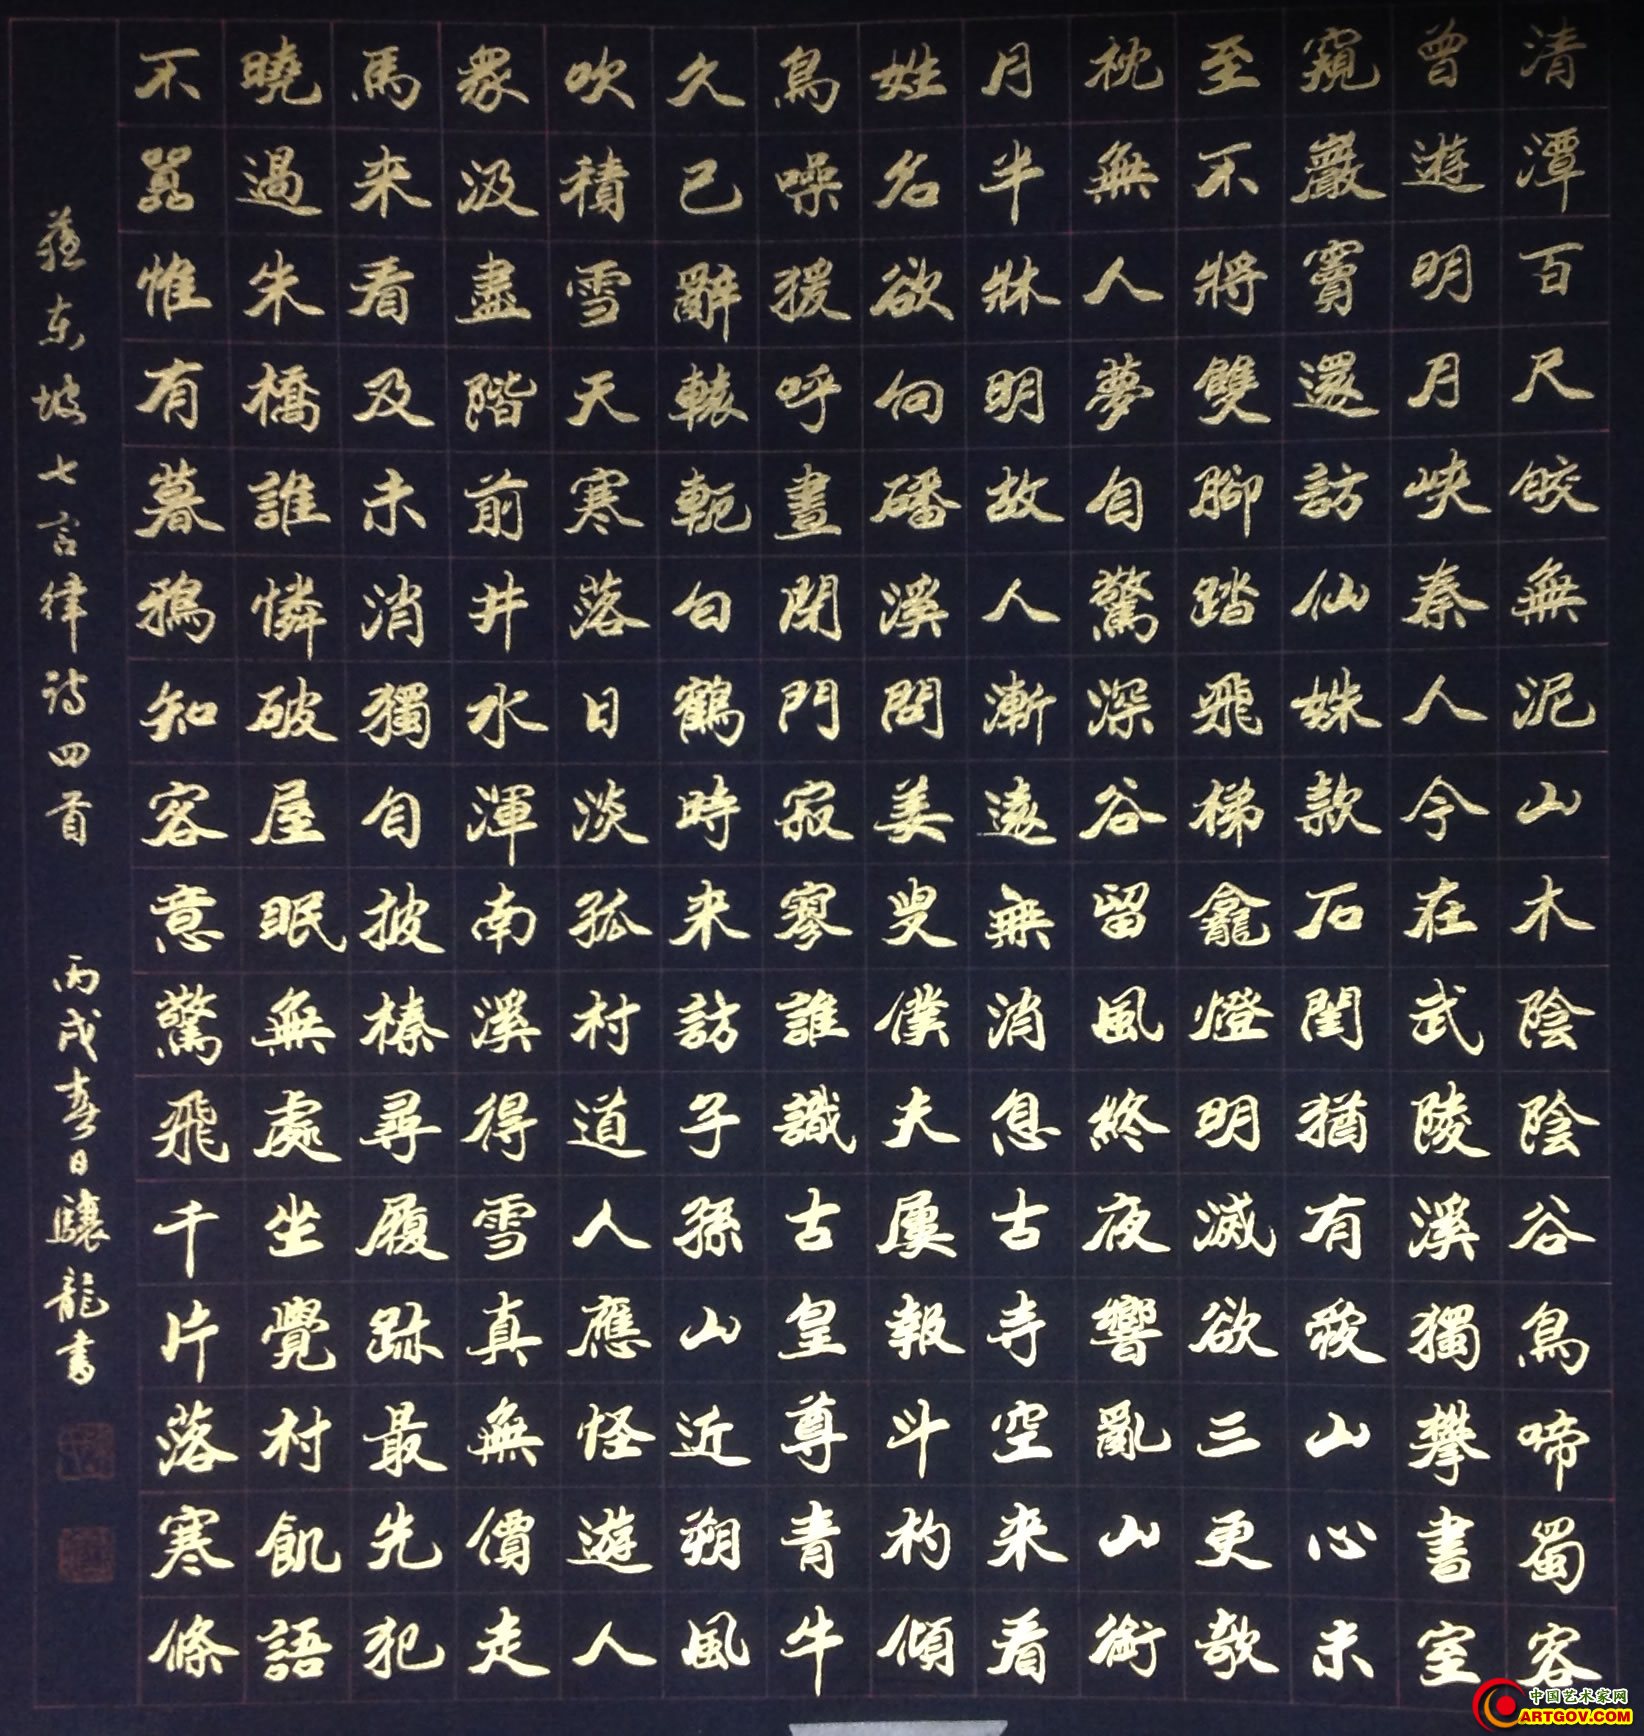 清潭百尺皎無泥山木陰陰谷鳥啼蜀客
曾遊明月峽秦人今在武陵溪獨攀書室
窺巖竇還訪仙姝款石閨猶有愛山心未
至不將雙腳踏飛梯龕燈明滅欲三更欹
枕無人夢自驚深谷留風終夜響亂山銜
月半牀明故人漸遠無消息古寺空来看
姓名欲向磻溪問姜叟僕夫屢報斗杓傾
鳥噪猨呼晝閉門寂寥誰識古皇尊青牛
久已辭轅軛白鶴時来訪子孫山近朔風
吹積雪天寒落日淡孤村道人應怪遊人
衆汲盡階前井水渾南溪得雪真無價走
馬来看及未消獨自披榛尋履跡最先犯
曉過朱橋誰憐破屋眠無處坐覺村飢語
不嚣惟有暮鴉知客意驚飛千片落寒條
蘇東坡七言律詩四首 丙戌春日驤龍書
中国艺术家网
ARTGOV.COM